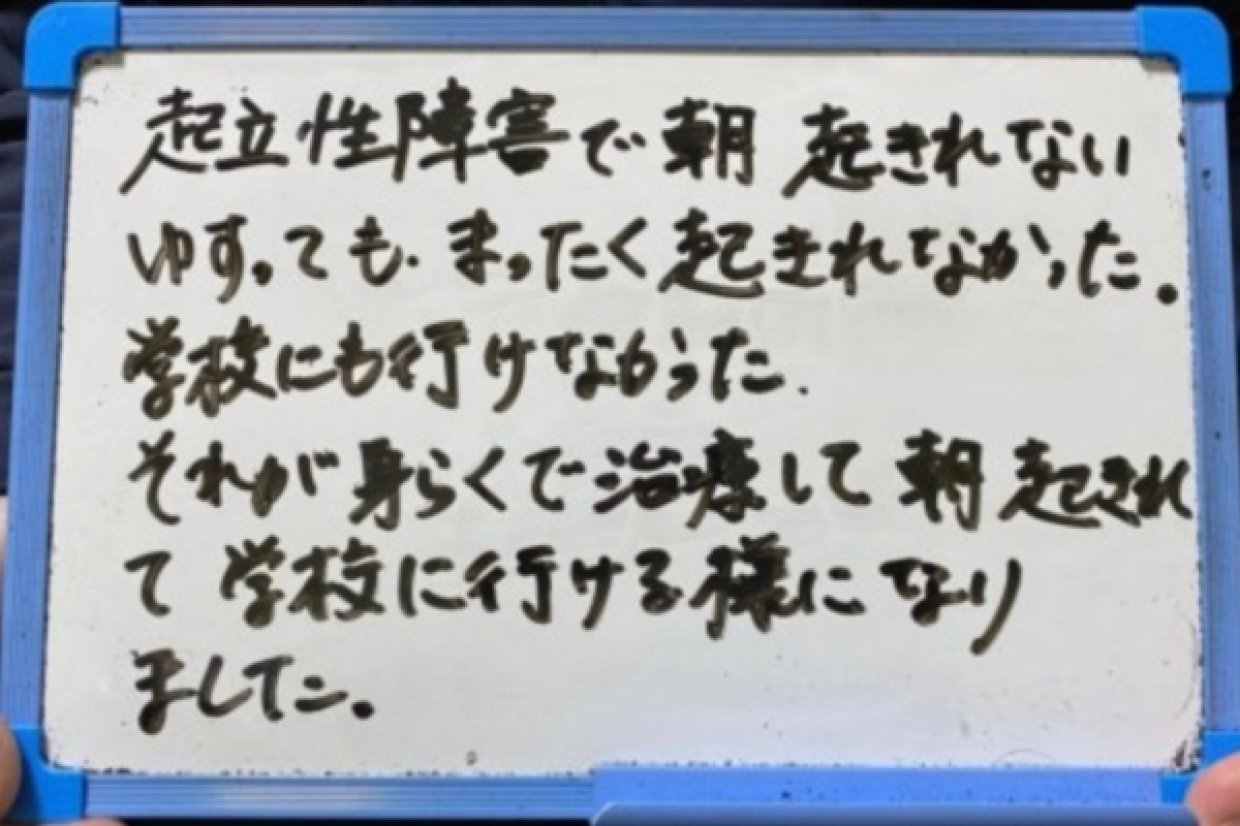 起立性障害で朝起きれない
ゆすっても、まったく起きれなかった。
学校にも行けなかった.
それが身らくで治療して朝起きれ
て学校に行ける様になり
ました。